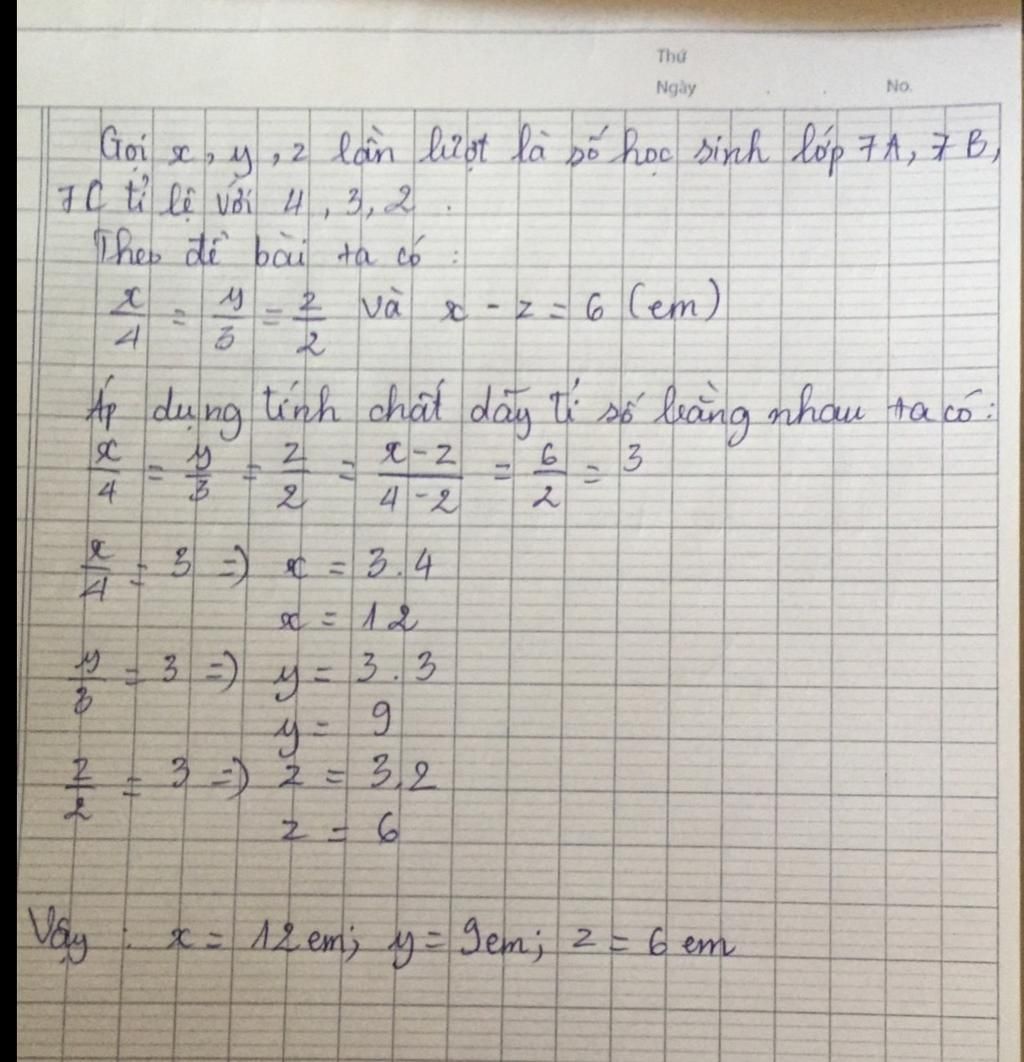 Thứ
Ngày No.
Gọi x, y, z lần lượt là số học sinh lớp 7A, 7B,
7C tỉ lệ với 4, 3, 2.
Theo đề bài ta có :
x/4 = y/3 = z/2 và x - z = 6 (em)
Áp dụng tính chất dãy tỉ số bằng nhau ta có:
x/4 = y/3 = z/2 = x-z/4-2 = 6/2 = 3
x/4 = 3 => x = 3.4
x = 12
y/3 = 3 => y = 3.3
y = 9
z/2 = 3 => z = 3.2
z = 6
Vậy : x = 12em; y = 9em; z = 6 em